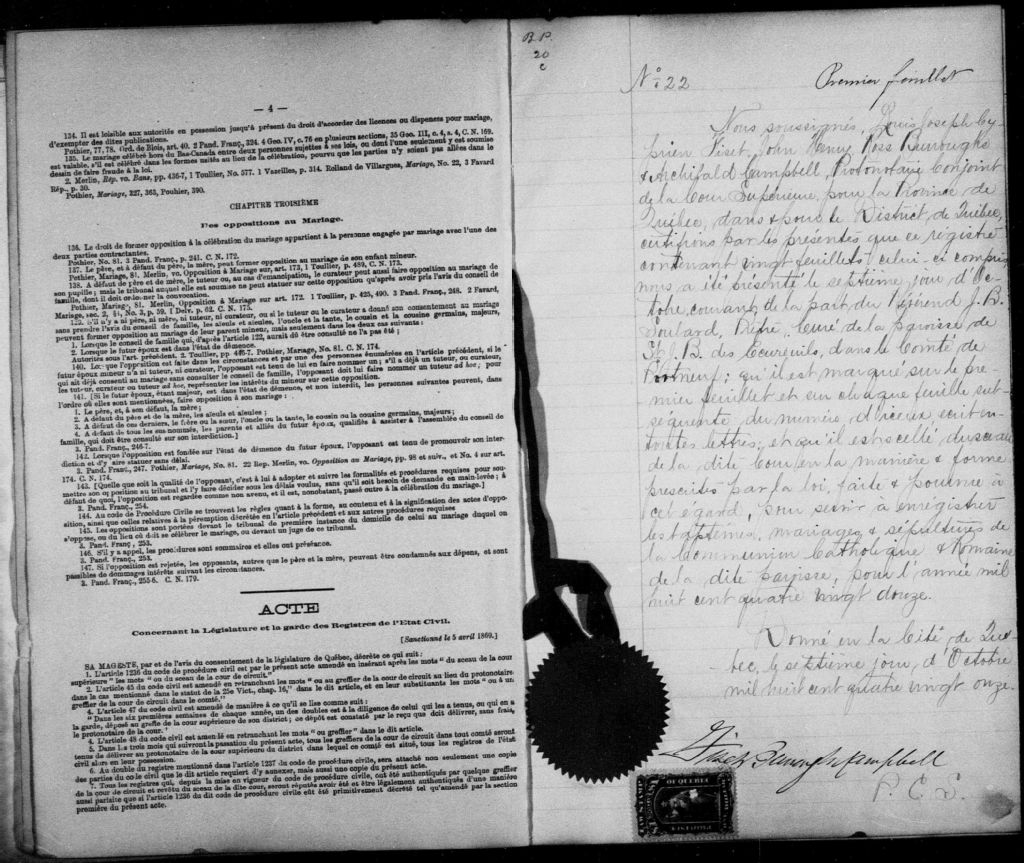 — 4 —
134. Il est loisible aux autorités en possession jusqu'à présent du droit d'accorder des licences ou dispenses pour mariage,
d'exempter des dites publications.
Pothier, 77, 78. Ord. de Blois, art. 40. 2 Pand. Franç. 324. 4 Geo. IV, c. 76 en plusieurs sections, 35 Geo. III, c. 4, s. 4, C. N. 169.
135. Le mariage célébré hors du Bas-Canada entre deux personnes sujettes à ses lois, ou dont l'une seulement y est soumise
est valable, s'il est célébré dans les formes usitées au lieu de la célébration, pourvu que les parties n'y soient pas allées dans le
dessein de faire fraude à la loi.
2. Merlin, Rép. vo. Bans, pp. 436-7, 1 Toullier, No. 577. 1 Vazeilles, p. 314. Rolland de Villargues, Mariage, No. 22, 3 Favard
Rép., p. 30.
Pothier, Mariage, 327, 363, Pouhier, 390.
CHAPITRE TROISIÈME
Des oppositions au Mariage.
136. Le droit de former opposition à la célébration du mariage appartient à la personne engagée par mariage avec l'une des
deux parties contractantes.
Pothier, No. 81. 3 Pand. Franç., p. 241. C. N. 172.
137. Le père, et à défaut du père, la mère, peut former opposition au mariage de son enfant mineur.
Pothier, Mariage, 81. Merlin, vo. Opposition à Mariage sur, art. 173, 1 Toullier, p. 489, C. N. 173.
138. A défaut de père et de mère, le tuteur ou, au cas d'émancipation, le curateur peut aussi faire opposition au mariage de
son pupille; mais le tribunal auquel elle est soumise ne peut statuer sur cette opposition qu'après avoir pris l'avis du conseil de
famille, dont il doit ordonner la convocation.
Pothier, Mariage, 81. Merlin, Opposition à Mariage sur art. 172. 1 Toullier, p. 425, 490. 3 Pand. Franç., 248. 2 Favard,
Mariage, sec. 2, §1, No. 3, p. 59. 1 Delv. p. 62. C. N. 175.
139. S'il n'y a ni père, ni mère, ni tuteur, ni curateur, ou si le tuteur ou le curateur a donné son consentement au mariage
sans prendre l'avis du conseil de famille, les aïeuls et aïeules, l'oncle et la tante, le cousin et la cousine germains, majeurs,
peuvent former opposition au mariage de leur parent mineur, mais seulement dans les deux cas suivants :
1. Lorsque le conseil de famille qui, d'après l'article 122, aurait dû être consulté ne l'a pas été ;
2. Lorsque le futur époux est dans l'état de démence.
Autorités sous l'art. précédent. 2. Toullier, pp. 476-7. Pothier, Mariage, No. 81. C. N. 174.
140. Lorsque l'opposition est faite dans les circonstances et par une des personnes énumérées en l'article précédent, si le
futur époux mineur n'a ni tuteur, ni curateur, l'opposant est tenu de lui en faire nommer un ; s'il a déjà un tuteur, ou curateur,
qui ait déjà consenti au mariage sans consulter le conseil de famille, l'opposant doit lui faire nommer un tuteur ad hoc ; pour
les tuteur, curateur ou tuteur ad hoc, représenter les intérêts du mineur sur cette opposition.
141. [Si le futur époux, étant majeur, est dans l'état de démence, et non interdit, les personnes suivantes peuvent, dans
l'ordre où elles sont mentionnées, faire opposition à son mariage :
1. Le père, et, à son défaut, la mère ;
2. A défaut du père et de la mère, les aïeuls et aïeules ;
3. A défaut de ces derniers, le frère ou la sœur, l'oncle ou la tante, le cousin ou la cousine germains, majeurs ;
4. A défaut de tous les sus nommés, les parents et alliés du futur époux, qualifiés à assister à l'assemblée du conseil de
famille, qui doit être consulté sur son interdiction.]
3. Pand. Franç., 246-7.
142. Lorsque l'opposition est fondée sur l'état de démence du futur époux, l'opposant est tenu de promouvoir son inter-
diction et d'y faire statuer sans délai.
3. Pand. Franç., 247. Pothier, Mariage, No. 81. 22 Rep. Merlin, vo. Opposition au Mariage, pp. 98 et suiv., et No. 4 sur art.
174. C. N. 174.
143. [Quelle que soit la qualité de l'opposant, c'est à lui à adopter et suivre les formalités et procédures requises pour sou-
mettre son opposition au tribunal et l'y faire décider sous les délais voulus, sans qu'il soit besoin de demande en main-levée ; à
défaut de quoi, l'opposition est regardée comme non avenu, et il est, nonobstant, passé outre à la célébration du mariage.]
3. Pand. Franç., 254.
144. Au Code de Procédure Civile se trouvent les règles quant à la forme, au contenu et à la signification des actes d'oppo-
sition, ainsi que celles relatives à la péremption décrétée en l'article précédent et aux autres procédures requises
145. Les oppositions sont portées devant le tribunal de première instance du domicile de celui au mariage duquel on
s'oppose, ou du lieu où doit se célébrer le mariage, ou devant un juge de ce tribunal.
3. Pand. Franç., 253.
146. S'il y a appel, les procédures sont sommaires et elles ont préséance.
3. Pand. Franç., 253.
147. Si l'opposition est rejetée, les opposants, autres que le père et la mère, peuvent être condamnés aux dépens, et sont
passibles de dommages intérêts suivant les circonstances.
3. Pand. Franç., 255-6. C. N. 179.
ACTE
Concernant la Législature et la garde des Registres de l'Etat Civil.
[Sanctionné le 5 avril 1869.]
SA MAGESTÉ, par et de l'avis du consentement de la législature de Québec, décrète ce qui suit :
1. L'article 1236 du code de procédure civil est par le présent acte amendé en insérant après les mots " du sceau de la cour
supérieure " les mots " ou du sceau de la cour de circuit."
2. L'article 45 du code civil est amendé en retranchant les mots " ou au greffier de la cour de circuit au lieu du protonotaire
dans le cas mentionné dans le statut de la 25e Vict., chap. 16," dans le dit article, et en leur substituants les mots " ou à un
greffier de la cour de circuit dans le comté."
3. L'article 47 du code civil est amendé de manière à ce qu'il se lise comme suit :
" Dans les six premières semaines de chaque année, un des doubles est à la diligence de celui qui les a tenus, ou qui en a
la garde, déposé au greffe de la cour supérieure de son district ; ce dépôt est constaté par le reçu que doit délivrer, sans frais,
le protonotaire de la cour. '
4. L'article 48 du code civil est amendé en retranchant les mots " ou greffier " dans le dit article.
5. Dans les trois mois qui suivront la passation du présent acte, tous les greffiers de la cour de circuit dans tout comté seront
tenus de délivrer au protonotaire de la cour supérieure du district dans lequel ce comté est situé, tous les registres de l'état
civil alors en leur possession.
6. Au double du registre mentionné dans l'article 1237 du code de procédure civile, sera attaché non seulement une copie
des parties du code civil que le dit article requiert d'y annexer, mais aussi une copie du présent acte.
7. Tous les registres qui, depuis la mise en vigueur du code de procédure civile, ont été authentiqués par quelque greffier
de la cour de circuit et revêtu du sceau de la dite cour, seront réputés avoir été et être légalement authentiqués d'une manière
aussi parfaite que si l'article 1236 du dit code de procédure civile eût été primitivement décrété tel qu'amendé par la section
première du présent acte.
B. P.
20
c
No 22
Premier feuillet
Nous soussignés, Louis Joseph Cy-
prien Fiset, John Henry Ross Burroughs
& Archibald Campbell, Protonotaire Conjoint
de la Cour Supérieure, pour la Province de
Québec, dans & pour le District de Québec,
certifions par les présentes que ce registre
contenant vingt feuillets celui-ci compris
nous a été présenté le septième jour d'Oc-
tobre, courant, de la part du Révérend J. B.
Soulard, Prêtre, Curé de la paroisse de
St J. B. des Ecureuils, dans le Comté de
Portneuf ; qu'il est marqué sur le pre-
mier feuillet et sur chaque feuille sub-
séquente du numéro d'iceux, écrit en
toutes lettres ; et qu'il est scellé du sceau
de la dite Cour en la manière & forme
prescrites par la loi, faite & pourvue à
cet égard, pour servir à enrégistrer
les baptêmes, mariages & sépultures de
la Communion Catholique & Romaine
de la dite paroisse, pour l'année mil
huit cent quatre vingt douze.
Donné en la Cité de Qué-
bec, le septième jour, d'Octobre
mil huit cent quatre vingt onze.
Fiset Burroughs Campbell
P. C. S.